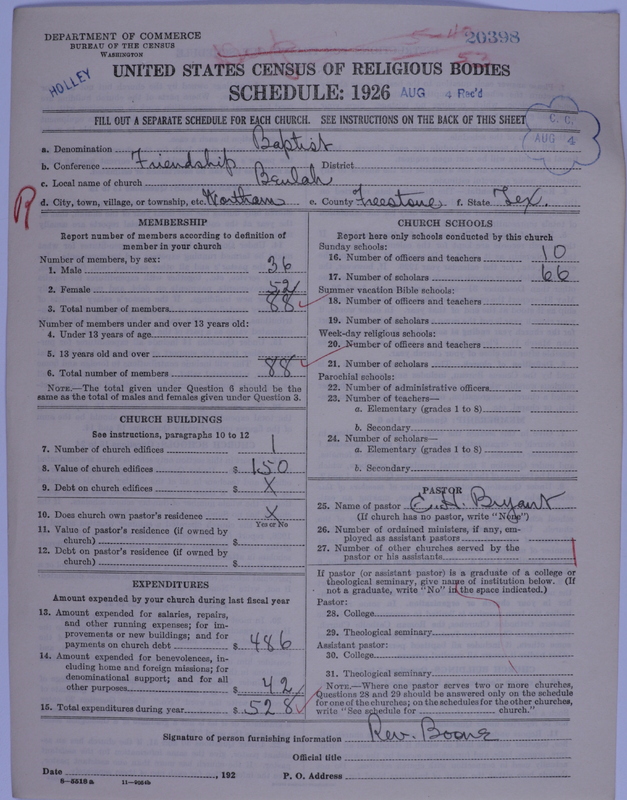 DEPARTMENT OF COMMERCE
BUREAU OF THE CENSUS
WASHINGTON
20398
HOLLEY
UNITED STATES CENSUS OF RELIGIOUS BODIES
SCHEDULE: 1926 AUG 4 Rec'd
FILL OUT A SEPARATE SCHEDULE FOR EACH CHURCH. SEE INSTRUCTIONS ON THE BACK OF THIS SHEET
C. C.
AUG 4
a. Denomination Baptist
b. Conference Friendship District
c. Local name of church Beulah
d. City, town, village, or township, etc. Wortham e. County Freestone f. State Tex.
R
MEMBERSHIP
Report number of members according to definition of
member in your church
Number of members, by sex:
1. Male 36
2. Female 52
3. Total number of members 88
Number of members under and over 13 years old:
4. Under 13 years of age
5. 13 years old and over
6. Total number of members 88
NOTE.—The total given under Question 6 should be the
same as the total of males and females given under Question 3.
CHURCH BUILDINGS
See instructions, paragraphs 10 to 12
7. Number of church edifices 1
8. Value of church edifices $ 150
9. Debt on church edifices $ X
10. Does church own pastor's residence X
Yes or No
11. Value of pastor's residence (if owned by
church) $
12. Debt on pastor's residence (if owned by
church) $
EXPENDITURES
Amount expended by your church during last fiscal year
13. Amount expended for salaries, repairs,
and other running expenses; for im-
provements or new buildings; and for
payments on church debt $ 486
14. Amount expended for benevolences, in-
cluding home and foreign missions; for
denominational support; and for all
other purposes $ 42
15. Total expenditures during year $ 528
CHURCH SCHOOLS
Report here only schools conducted by this church
Sunday schools:
16. Number of officers and teachers 10
17. Number of scholars 66
Summer vacation Bible schools:
18. Number of officers and teachers
19. Number of scholars
Week-day religious schools:
20. Number of officers and teachers
21. Number of scholars
Parochial schools:
22. Number of administrative officers
23. Number of teachers—
a. Elementary (grades 1 to 8)
b. Secondary
24. Number of scholars—
a. Elementary (grades 1 to 8)
b. Secondary
PASTOR
25. Name of pastor E. H. Bryant
(If church has no pastor, write "None")
26. Number of ordained ministers, if any, em-
ployed as assistant pastors
27. Number of other churches served by the
pastor or his assistants
If pastor (or assistant pastor) is a graduate of a college or
theological seminary, give name of institution below. (If
not a graduate, write "No" in the space indicated.)
Pastor:
28. College
29. Theological seminary
Assistant pastor:
30. College
31. Theological seminary
NOTE.—Where one pastor serves two or more churches,
Questions 28 and 29 should be answered only on the schedule
for one of the churches; on the schedules for the other churches,
write "See schedule for church."
Signature of person furnishing information Rev. Boone
Official title
Date , 192 P. O. Address